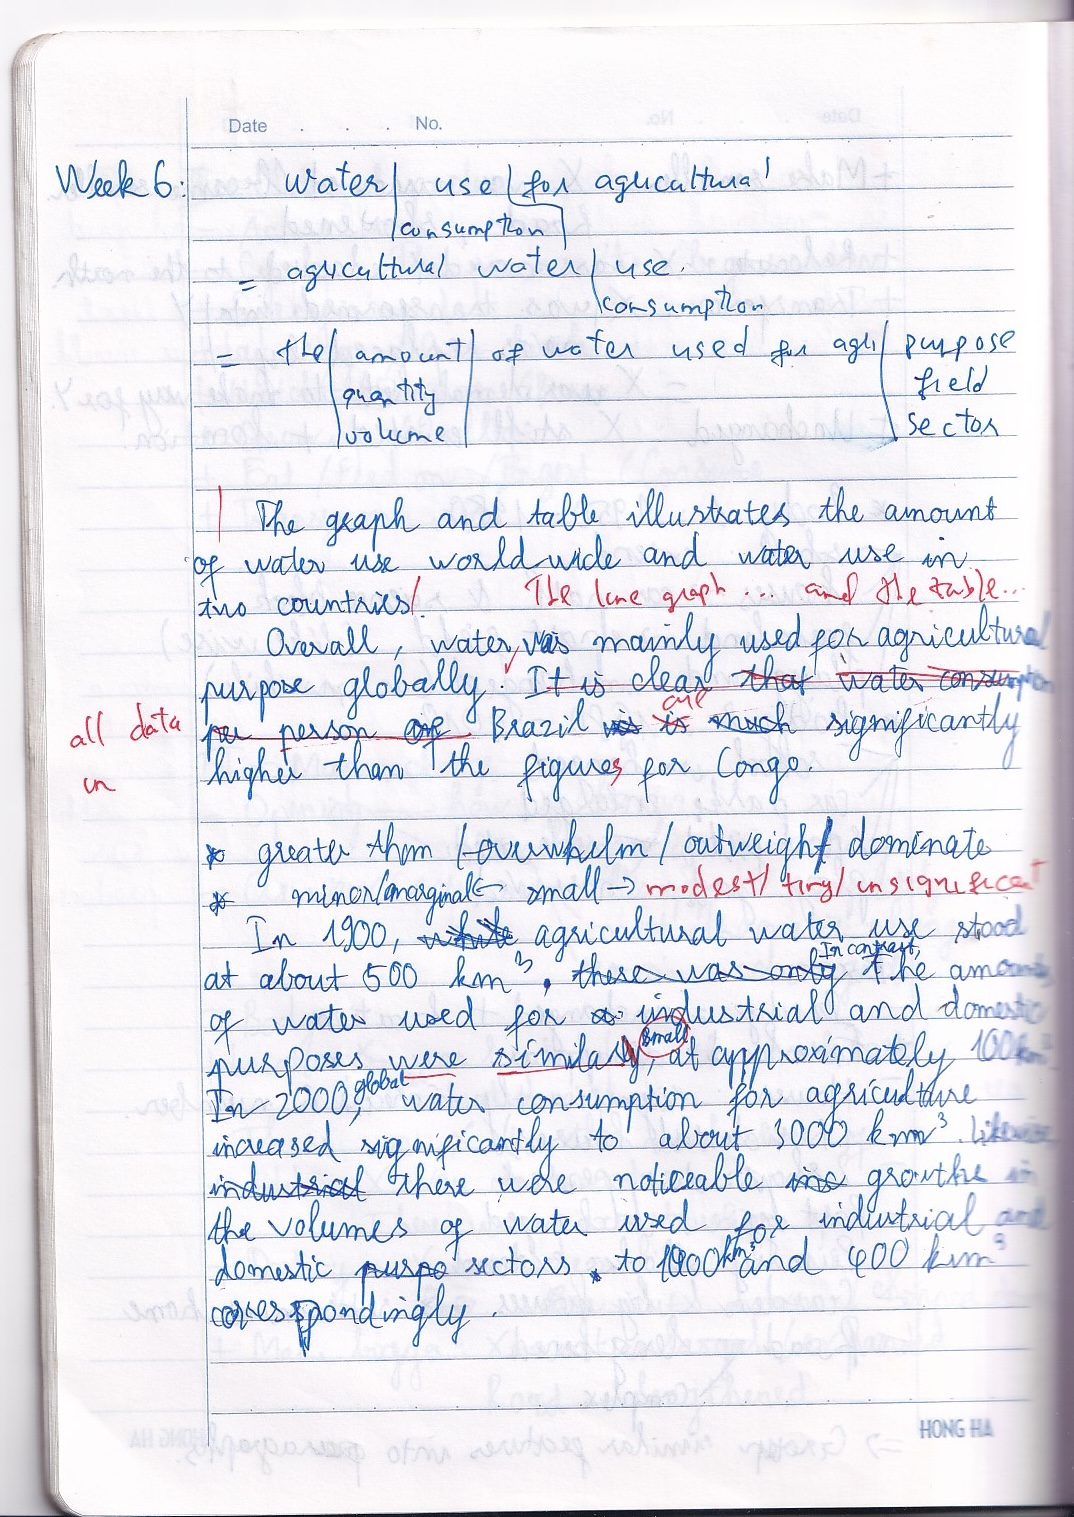 Date . . . No.
Week 6: water use for agricultural
consumption
= agricultural water use.
consumption
= the amount of water used for agri purpose
quantity field
volume sector
The graph and table illustrates the amount
of water use worldwide and water use in
two countries/. The line graph ... and the table...
Overall, water was mainly used for agricultural
purpose globally. It is clear that water consumption
all data per person of Brazil is is much significantly
are
in higher than the figures for Congo.
* greater than / overwhelm / outweigh / dominate
* minor/marginal ← small → modest/ tiny/ insignificant
In 1900, while agricultural water use stood
at about 500 km³. there was only In contrast, the amount
of water used for industrial and domestic
purposes were similarly small, at approximately 100 km³
In 2000, global water consumption for agriculture
increased significantly to about 3000 km³. Likewise
industrial there were noticeable growths in
the volumes of water used for industrial and
domestic purpo sectors. to 1000 km³ and 400 km³
correspondingly.
HONG HA